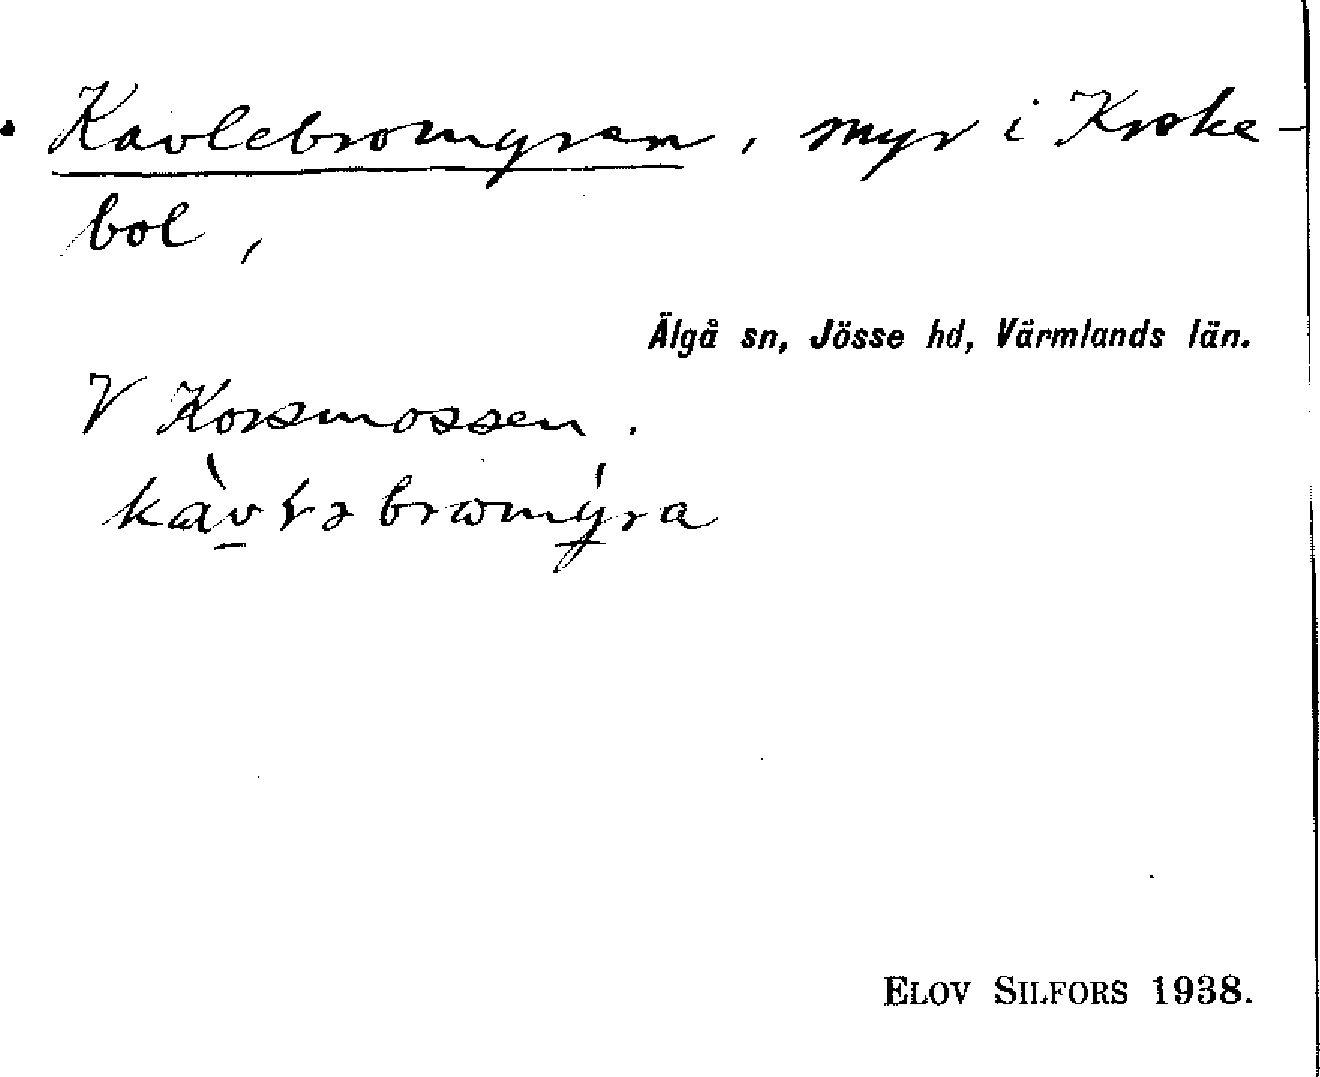 Kavlebromyren, myr i Kroke-
bol,
Älgå sn, Jösse hd, Värmlands län.
V Korsmossen.
ELOV SILFORS 1938.